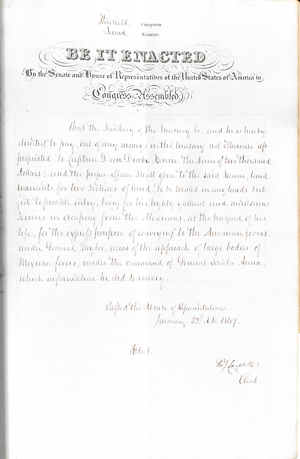 Thirtieth Congress
Second Session
BE IT ENACTED
By the Senate and House of Representatives of the United States of America in
Congress Assembled,
That the Secretary of the Treasury be, and he is hereby,
directed to pay, out of any money in the treasury not otherwise ap-
propriated to Captain Dan Drake Henrie the sum of two thousand
dollars; and the proper officer shall issue to the said Henrie, land
warrants for two sections of land, to be located on any lands sub-
ject to private entry, being for his highly gallant and meritorious
services in escaping from the Mexicans, at the hazard of his
life, for the express purpose of conveying to the American forces
under General Taylor, news of the approach of large bodies of
Mexican forces, under the command of General Santa Anna,
which information he did so convey.
Passed the House of Representatives
January 1849.
Attest,
Clerk